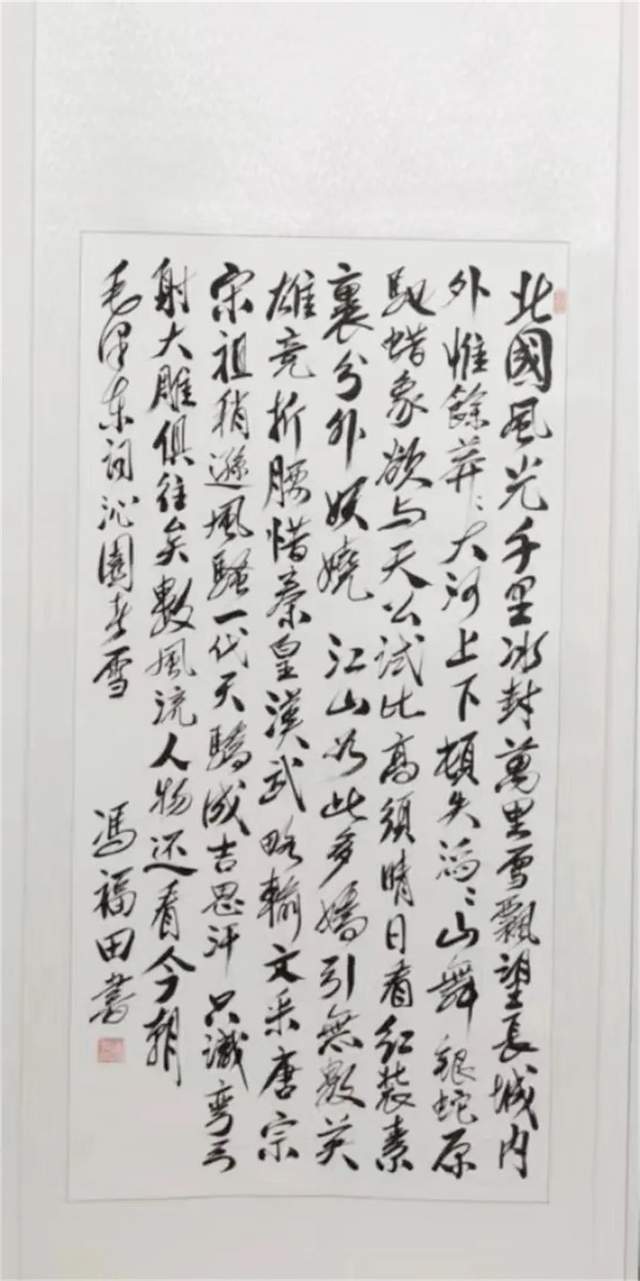 北國风光千里冰封萬里雪飄望長城内
外惟餘莽〻大河上下頓失滔〻山舞銀蛇原
馳蜡象欲与天公試比高須晴日看红装素
裹分外妖嬈 江山如此多嬌引無數英
雄竞折腰惜秦皇漢武略輸文采唐宗
宋祖稍遜風騷一代天驕成吉思汗只識彎弓
射大雕俱往矣數風流人物还看今朝
毛泽东词沁園春雪 馮福田書